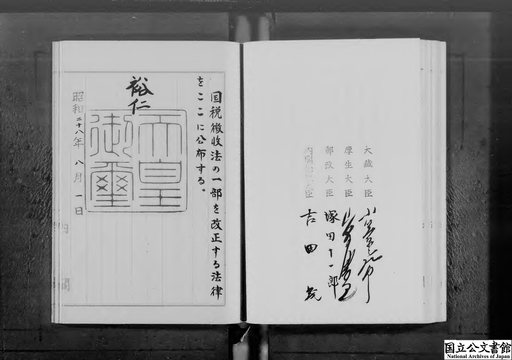 大蔵大臣
厚生大臣
郵政大臣 塚田十一郎
大臣 吉田茂
国税徴收法の一部を改正する法律
をここに公布する。
裕仁
天皇
御璽
昭和二十八年八月一日
内閣
国立公文書館
National Archives of Japan